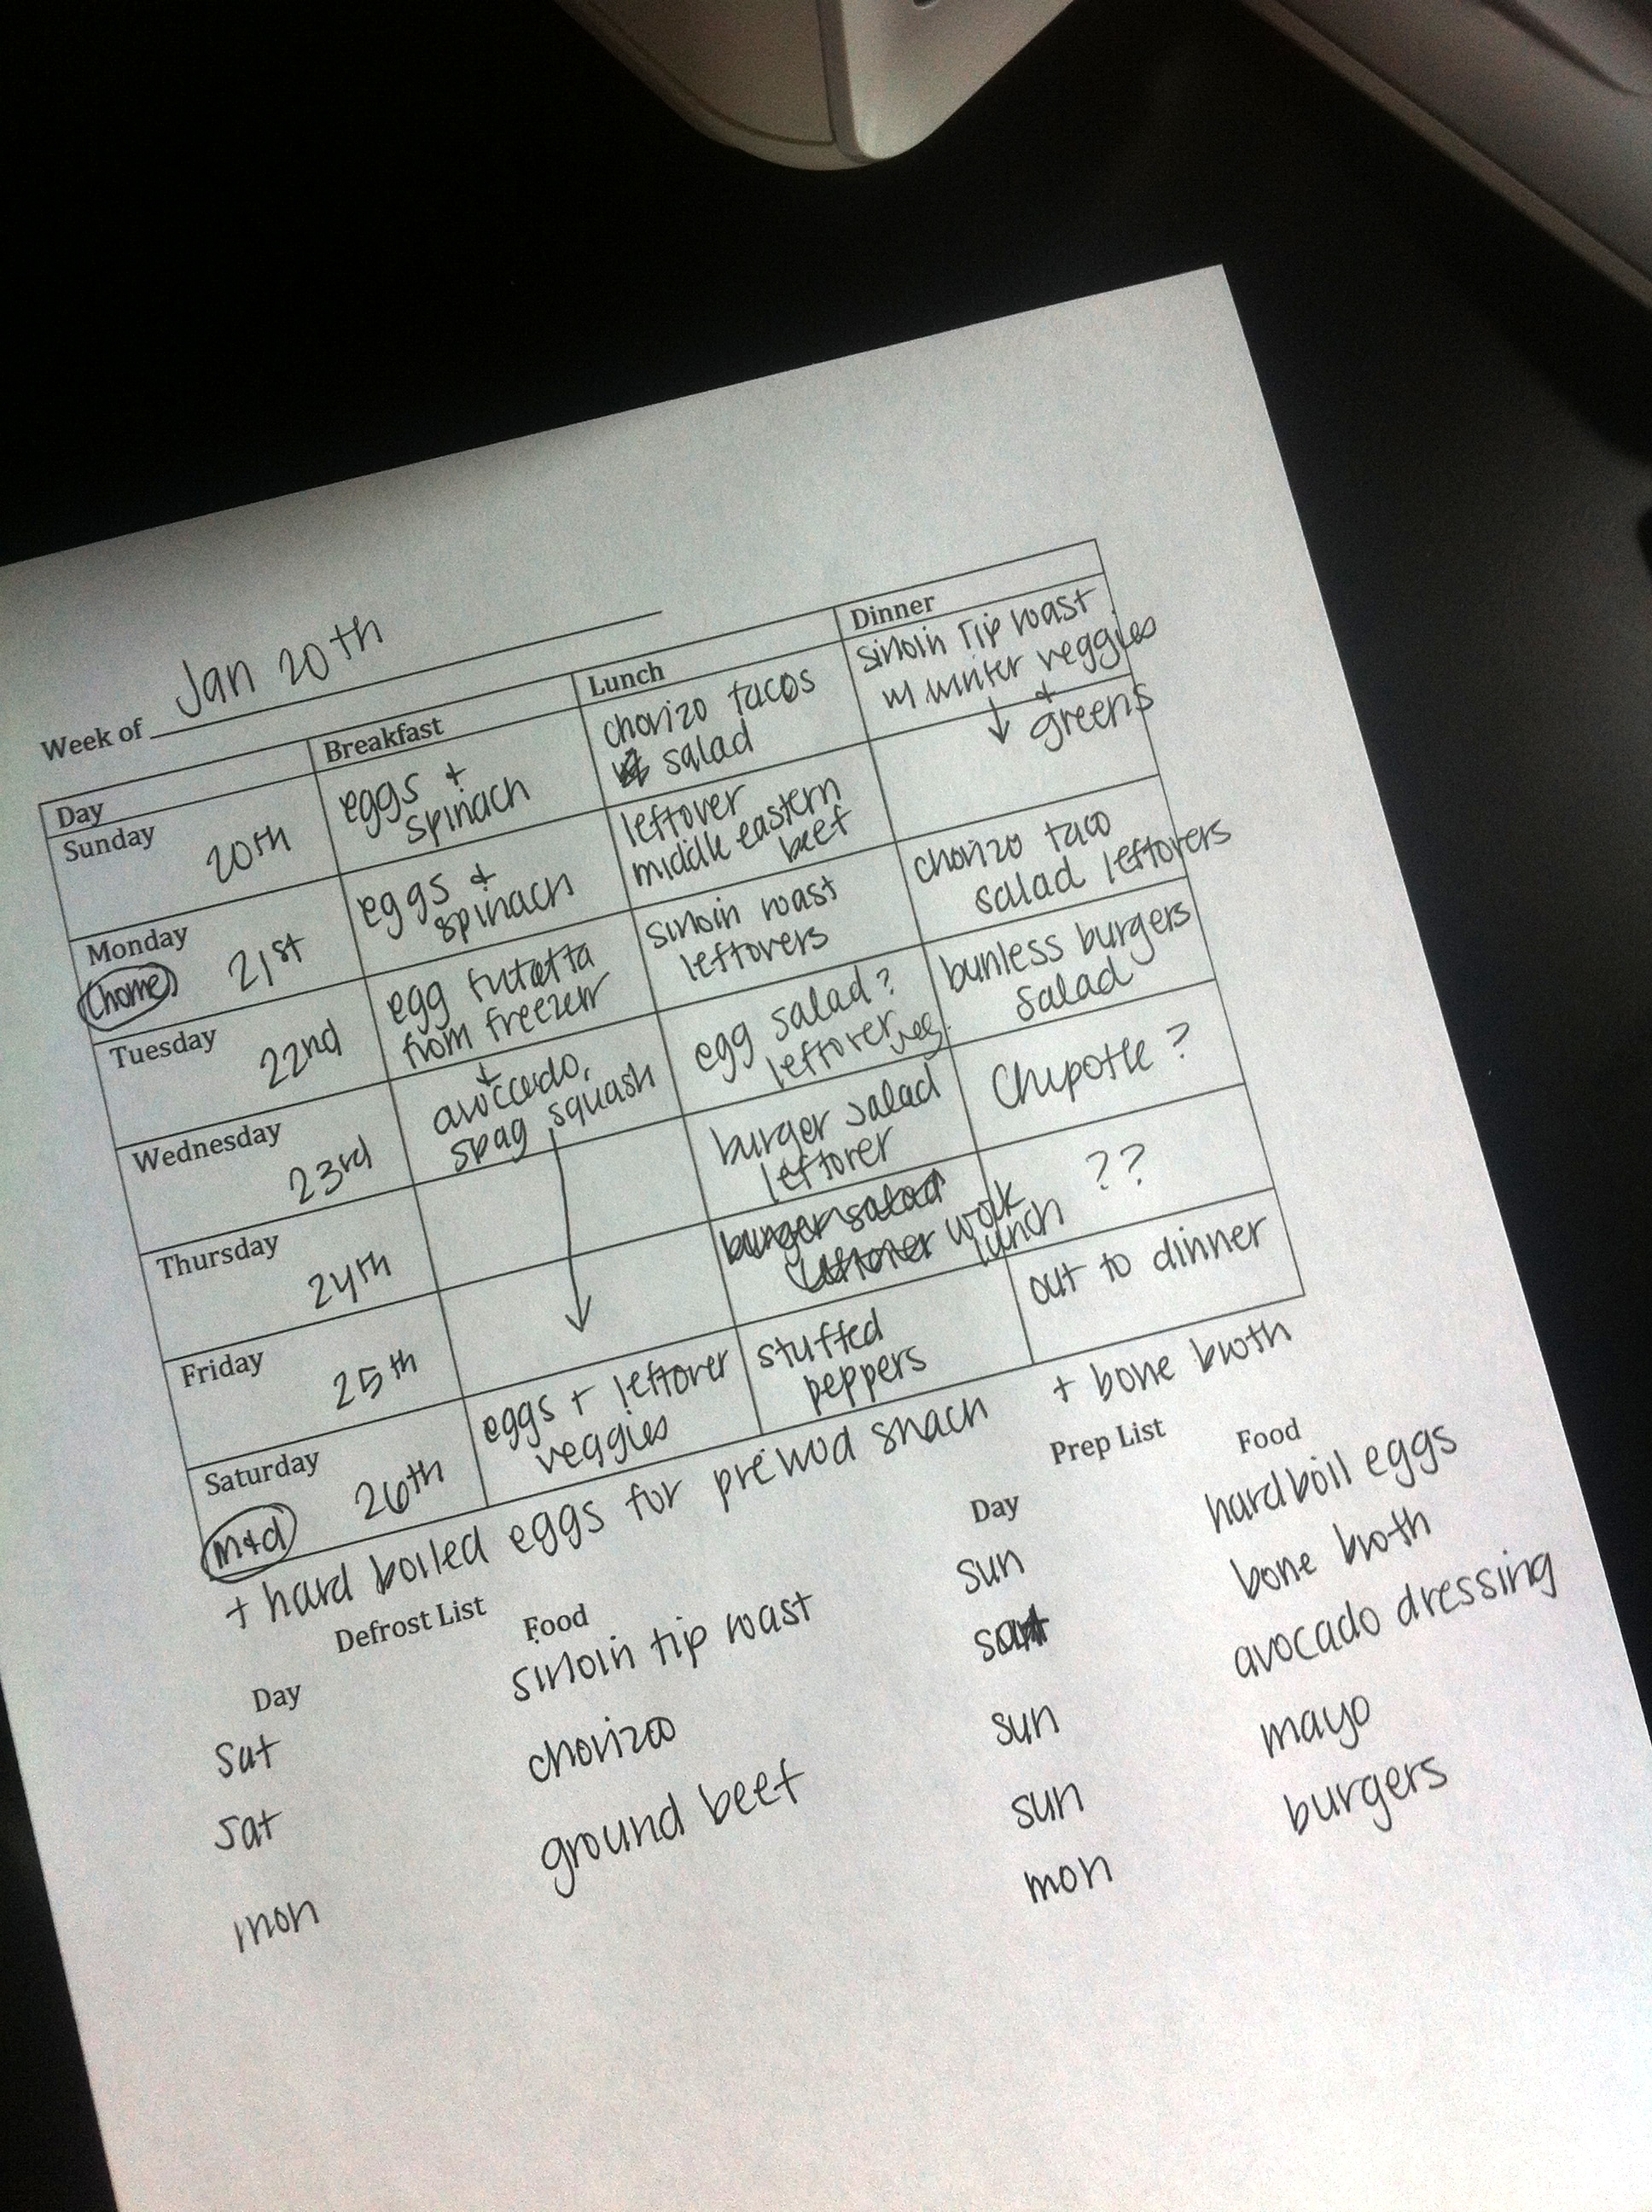 Week of Jan 20th
Day Breakfast Lunch Dinner
Sunday 20th
eggs +
spinach
chorizo tacos
salad
sirloin tip roast
w/ winter veggies
+
greens
Monday 21st
(home)
eggs +
spinach
leftover
middle eastern
beef
Tuesday 22nd
egg frittatta
from freezer
+
avoccado,
spag squash
sirloin roast
leftovers
chorizo taco
salad leftovers
Wednesday 23rd
egg salad?
leftover veg.
bunless burgers
salad
Thursday 24th
burger salad
leftover
Chipotle ?
Friday 25th
burger salad
leftover work
lunch
??
Saturday 26th
m+d
eggs + leftover
veggies
stuffed
peppers
out to dinner
+ hard boiled eggs for prewod snach + bone broth
Defrost List
Day Food
Sat sirloin tip roast
Sat chorizo
mon ground beef
Prep List
Day Food
sun hardboil eggs
bone broth
sun avocado dressing
sun mayo
mon burgers